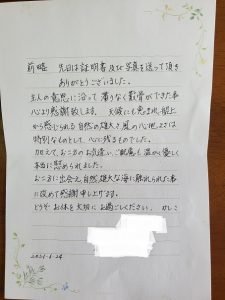 前略 先日は証明書及び写真を送って頂き
ありがとうございました。
主人の意思に沿って滞りなく散骨ができた事
心より感謝致します。天候にも恵まれ、船上
から感じられる自然の雄大さ風の心地よさは
特別なものとして、心に残るものでした。
加えて、お二方のお気遣い、ご配慮も温かく優しく
本当に慰められました。
お二方に出会え、自然雄大な海に触れられた事
に改めて感謝申し上げます。
どうぞお体を大切にお過ごしください。 かしこ
2021.6.24